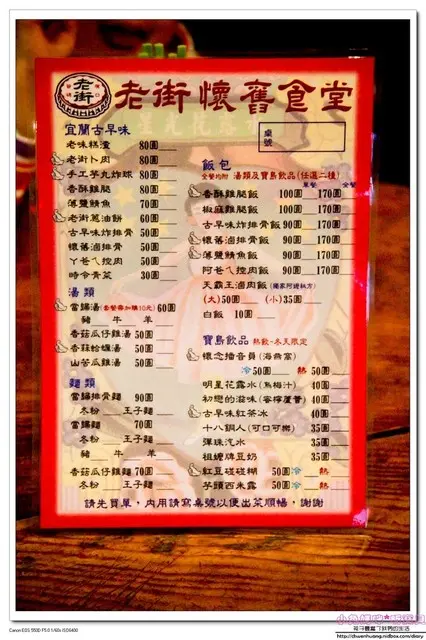 老街
老街懷舊食堂
桌號
宜蘭古早味
老味糕渣 80圓
老街卜肉 80圓
手工芋丸炸球 80圓
香酥雞腿 80圓
薄鹽鯖魚 70圓
老街蔥油餅 60圓
古早味炸排骨 50圓
懷舊滷排骨 50圓
丫爸ㄟ控肉 50圓
時令青菜 30圓
湯類
當歸湯(套餐需加購10元) 60圓
豬 牛 羊
香菇瓜仔雞湯 50圓
香菇蛤蠣湯 50圓
山苦瓜雞湯 50圓
麵類
當歸排骨麵 90圓
冬粉 王子麵
當歸麵 70圓
冬粉 王子麵
豬 牛 羊
香菇瓜仔雞麵 70圓
冬粉 王子麵
飯包
全餐均附 湯類及寶島飲品(任選二種)
單餐 全餐
香酥雞腿飯 100圓 170圓
椒麻雞腿飯 100圓 170圓
古早味炸排骨飯 90圓 170圓
懷舊滷排骨飯 90圓 170圓
薄鹽鯖魚飯 90圓 170圓
阿爸ㄟ控肉飯 90圓 170圓
天霸王滷肉飯 (獨家阿嬤秘方)
(大)50圓 (小)35圓
白飯 10圓
寶島飲品 熱飲-冬天限定
懷念播音員(海燕窩)
冷50圓 熱 50圓
明星花露水(烏梅汁) 40圓
初戀的滋味(蜜檸蘆薈) 40圓
古早味紅茶冰 40圓
十八銅人(可口可樂) 35圓
彈珠汽水 35圓
祖嬤牌豆奶 35圓
紅豆碰碰糊 50圓 冷 熱
芋頭西米露 50圓 冷 熱
請先買單，內用請寫桌號以便出菜順暢，謝謝
Canon EOS 550D F5.0 1/60s ISO6400
http://chuenhuang.nidbox.com/diary